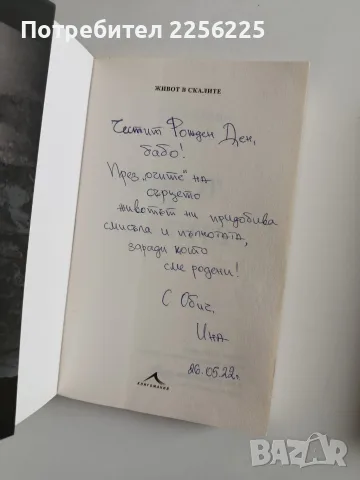 Потребител Потребител
ЖИВОТ В СКАЛИТЕ
Честит Рожден Ден,
бабо!
През „очите“ на
сърцето
животът ни придобива
смисъла и пълнотата,
заради които
сме родени!
С Обич,
Ина
26.05.22г.
КНИГОМАНИЯ
bazar.bg